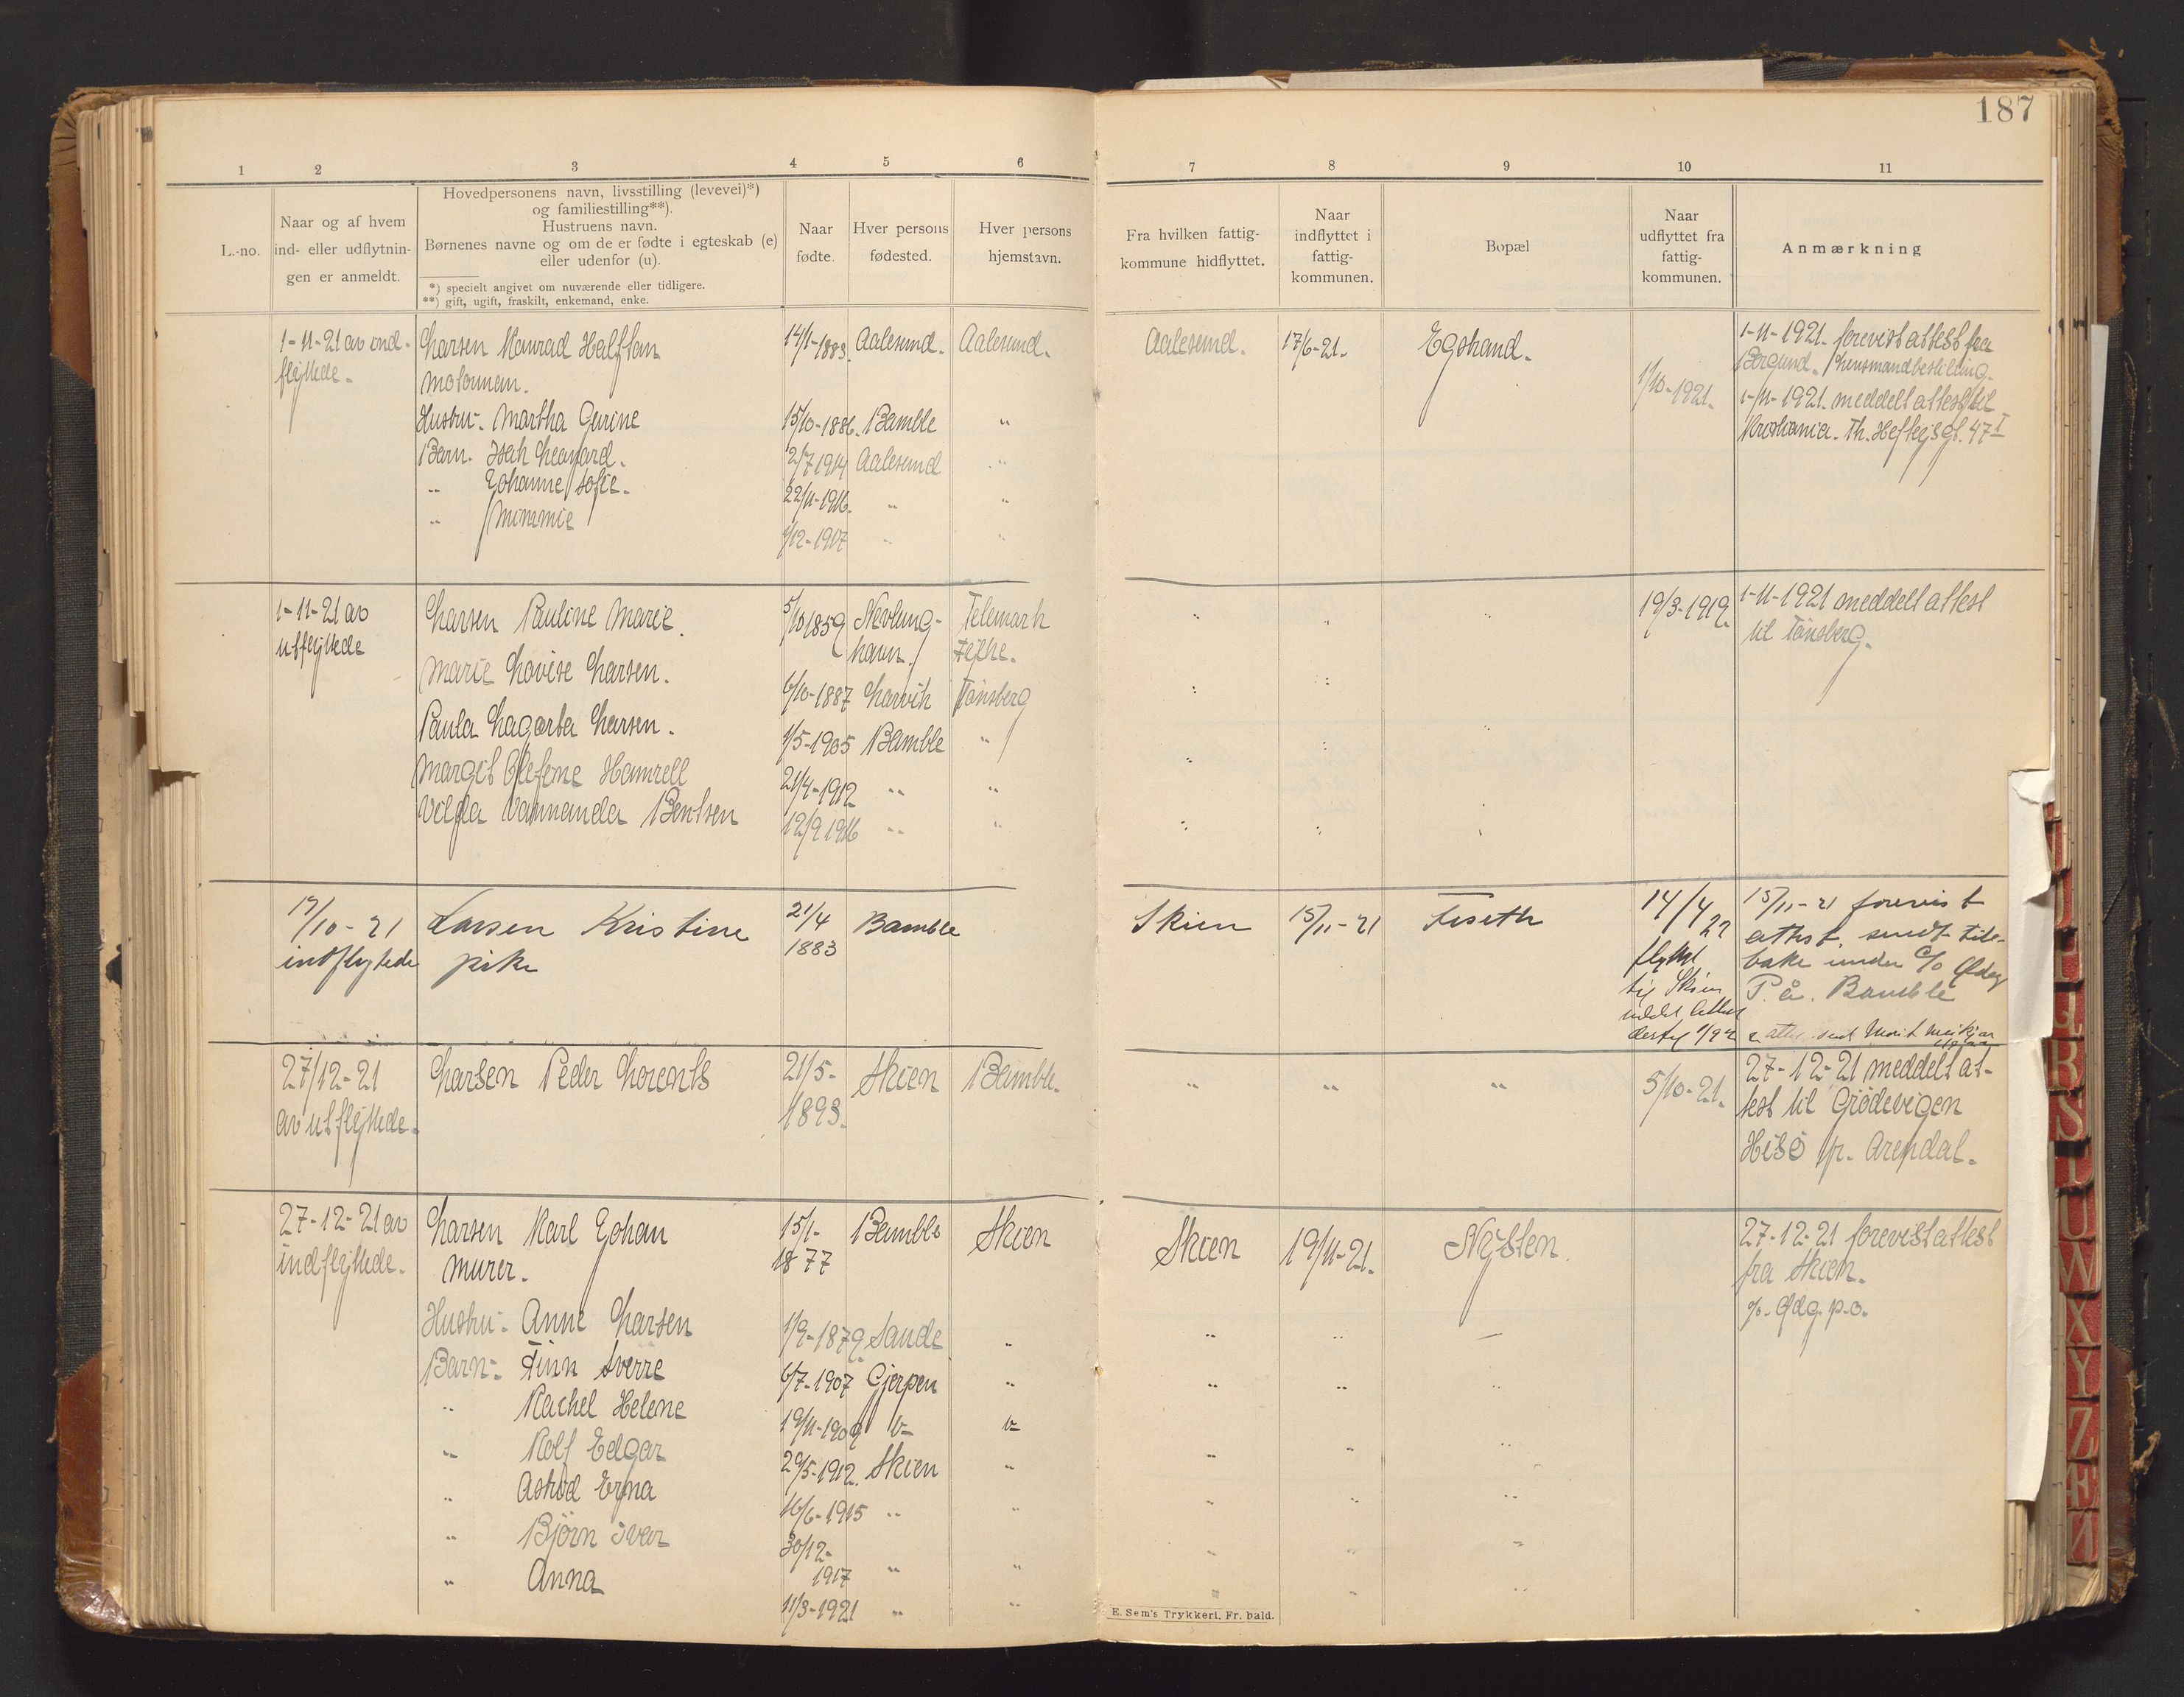 187
1 2 3 4 5 6 7 8 9 10 11
L.-no.
Naar og af hvem
ind- eller udflytnin-
gen er anmeldt.
Hovedpersonens navn, livsstilling (levevei)*)
og familiestilling**).
Hustruens navn.
Børnenes navne og om de er fødte i egteskab (e)
eller udenfor (u).
*) specielt angivet om nuværende eller tidligere.
**) gift, ugift, fraskilt, enkemand, enke.
Naar
fødte.
Hver persons
fødested.
Hver persons
hjemstavn.
Fra hvilken fattig-
kommune hidflyttet.
Naar
indflyttet i
fattig-
kommunen.
Bopæl
Naar
udflyttet fra
fattig-
kommunen.
Anmærkning
1-11-21 av ind-
flyttede.
Larsen Konrad Halfdan
Motorman.
14/1-1883. Aalesund. Aalesund.
Aalesund. 17/6-21. Egstrand.
1/10-1921.
1-11-1921. forevist attest fra
Borgund. Lensmandbestilling.
1-11-1921. meddelt attest til
Kristiania. Th. Heftyes gt. 47 I
Hustru: Martha Gurine 15/10-1886. Bamble "
Barn. Isak Leonard. 2/7 1914 Aalesund "
" Johanne Sofie. 22/11-1916. " "
" Mimmie 1/12-1917 " "
1-11-21 av
utflyttede
Larsen Pauline Marie. 5/10 1859 Nevlung-
havn. Telemark
Fylke.
" " " 19/3-1919. 1-11-1921 meddelt attest
til Tønsberg.
Marie Lovise Larsen. 6/10-1887 Larvik Tønsberg
Paula Lagarta Larsen. 1/5-1905 Bamble "
Margit Olefene Hamrell 21/4-1912 " "
Vilda Vannanda Bentsen 12/9 1916 " "
17/10-21
indflytede
Larsen Kristine
pike
21/4
1883
Bamble
Skien 15/11-21 Fiseth
14/4 22
flyttet
til Skien
15/11-21 forevist
attest. sendt til-
bake under c/o Ofdag
P. å. Bamble
27/12-21
av utflyttede.
Larsen Peder Lorents
21/5-
1893.
Skien Bamble.
" " "
5/10-21.
27-12-21 meddelt at-
test til Grødevigen
Hisö pr. Arendal.
27-12-21 av
indflyttede.
Larsen Karl Johan
Murer.
15/1-
1877
Bamble Skien
Skien 19/11-21. Nysten.
27-12-21 forevist attest
fra Skien.
c/o. Ofdg. p.o.
Hustru: Anne Larsen 1/9-1879. Sande " " " -
Barn: Finn Sverre 6/7-1907 Gjerpen " " " "
" Rachel Helene 19/11-1909 " "
" Rolf Edgar 29/5-1912. Skien " " " "
" Astrid Erna 16/6-1915 " " " " "
" Bjørn Ivar 30/12-
1917 " " " " "
" Anna 11/3-1921 " " " "
E. Sem's Trykkeri, Fr. hald.
L
P
R
S
T
U
W
X
Y
Z
Æ
Ø